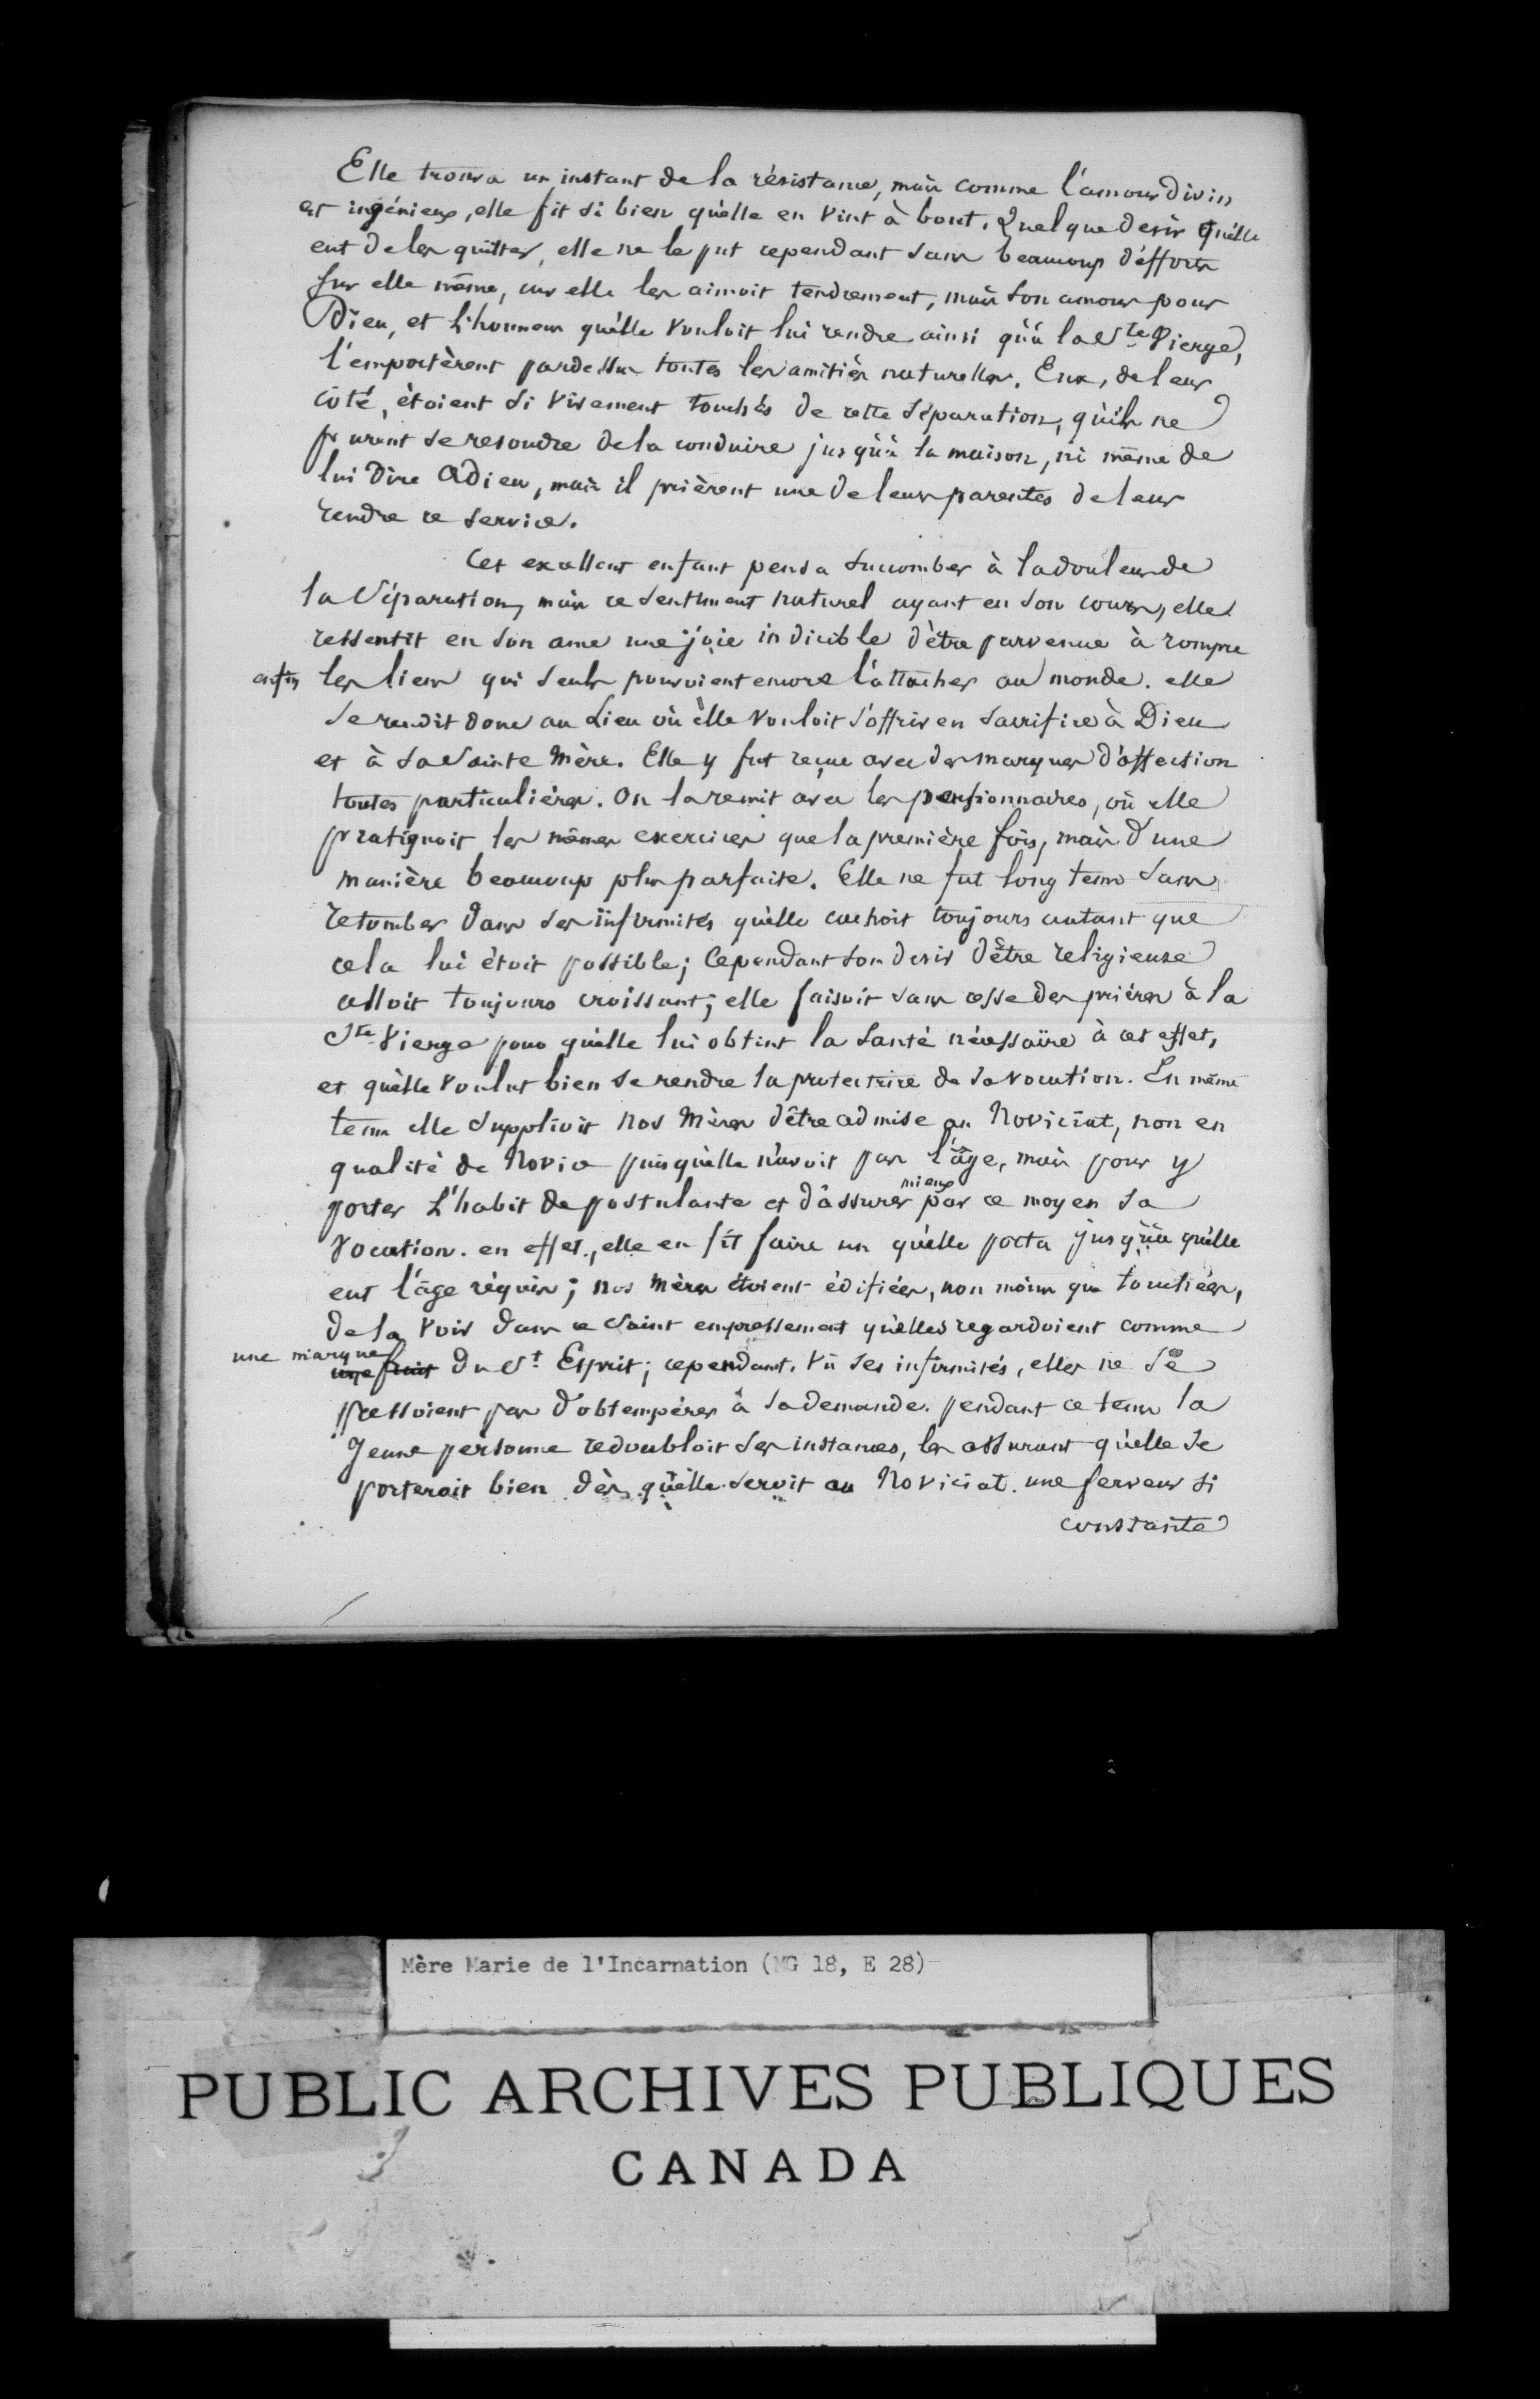 Elle trouva un instant de la résistance, mais comme l'amour divin
est ingénieux, elle fit si bien qu'elle en vint à bout. Quelque desir qu'elle
eut de les quitter, elle ne le put cependant sans beaucoup d'éfforts
sur elle même, car elle les aimoit tendrement, mais son amour pour
Dieu, et l'honneur qu'elle vouloit lui rendre ainsi qu'à la Ste Vierge,
l'emportèrent pardessus toutes les amitiés naturelles. Eux, de leur
côté, étoient si vivement touchés de cette séparation, qu'ils ne
purent se resoudre de la conduire jusqu'à la maison, ni même de
lui dire Adieu, mais il prièrent une de leurs parentes de leur
rendre ce service.
Cet excellent enfant pensa succomber à la douleur de
la séparation, mais ce sentiment naturel ayant eu son cours, elle
ressentit en son ame une joie indicible d'être parvenue à rompre
enfin les liens qui seuls pouvoient encore l'attacher au monde. elle
se rendit donc au Lieu où elle vouloit s'offrir en sacrifice à Dieu
et à sa sainte Mère. Elle y fut reçue avec des marques d'affection
toutes particulières. On la remit avec les pensionnaires, où elle
pratiquoit les mêmes exercices que la première fois, mais d'une
manière beaucoup plus parfaite. Elle ne fut long tems sans
retomber dans ses infirmités qu'elle cachoit toujours autant que
cela lui étoit possible; Cependant son desir d'être religieuse
alloit toujours croissant; elle faisoit sans cesse des prières à la
Ste Vierge pour qu'elle lui obtint la santé nécessaire à cet effet,
et qu'elle voulut bien se rendre la protectrice de sa vocation. En même
tems elle supplioit nos Mères d'être admise au Noviciat, non en
qualité de Novice puisqu'elle n'avoit pas l'âge, mais pour y
mieux
porter L'habit de postulante et d'assurer par ce moyen sa
vocation. en effet, elle en fit faire un qu'elle porta jusqu'à qu'elle
eut l'âge réquis; nos Mères étoient édifiées, non moins que touchées,
de la voir dans ce saint empressement qu'elles regardoient comme
une marque
une fruit du St Esprit; cependant, vû ses infirmités, elles ne se
pressoient pas d'obtempérer à sa demande. pendant ce tems la
Jeune personne redoubloit ses instances, les assurant qu'elle se
porterait bien dès qu'elle seroit au Noviciat. une ferveur si
constante
Mère Marie de l'Incarnation (MG 18, E 28)
PUBLIC ARCHIVES PUBLIQUES
CANADA